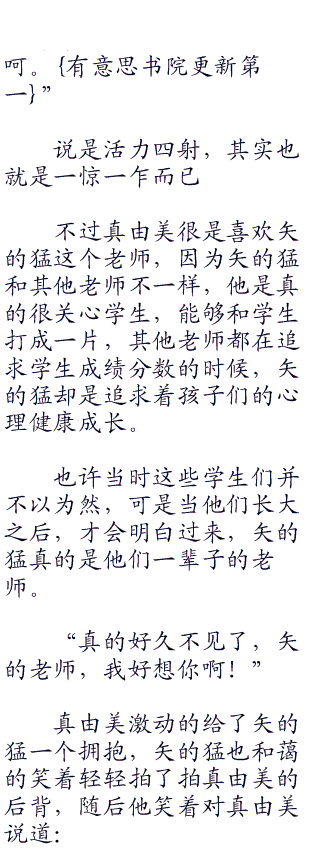 呵。{有意思书院更新第
一}”
说是活力四射，其实也
就是一惊一乍而已
不过真由美很是喜欢矢
的猛这个老师，因为矢的猛
和其他老师不一样，他是真
的很关心学生，能够和学生
打成一片，其他老师都在追
求学生成绩分数的时候，矢
的猛却是追求着孩子们的心
理健康成长。
也许当时这些学生们并
不以为然，可是当他们长大
之后，才会明白过来，矢的
猛真的是他们一辈子的老
师。
“真的好久不见了，矢
的老师，我好想你啊！”
真由美激动的给了矢的
猛一个拥抱，矢的猛也和蔼
的笑着轻轻拍了拍真由美的
后背，随后他笑着对真由美
说道：